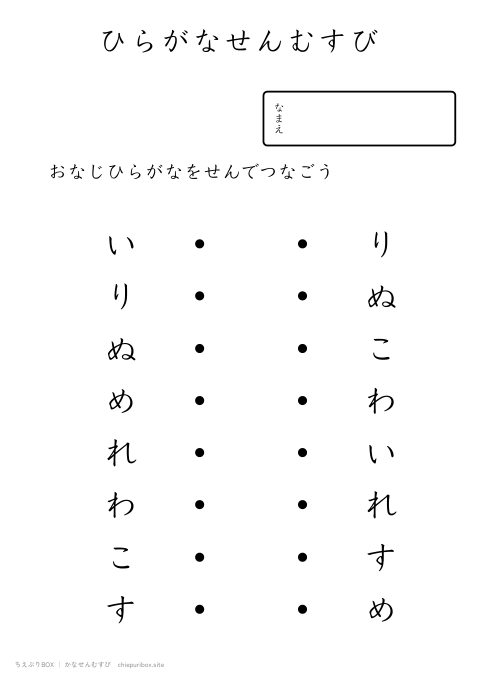 ひらがなせんむすび
なまえ
おなじひらがなをせんでつなごう
い ● ● り
り ● ● ぬ
ぬ ● ● こ
め ● ● わ
れ ● ● い
わ ● ● れ
こ ● ● す
す ● ● め
ちえぷりBOX | かなせんむすび chiepuribox.site